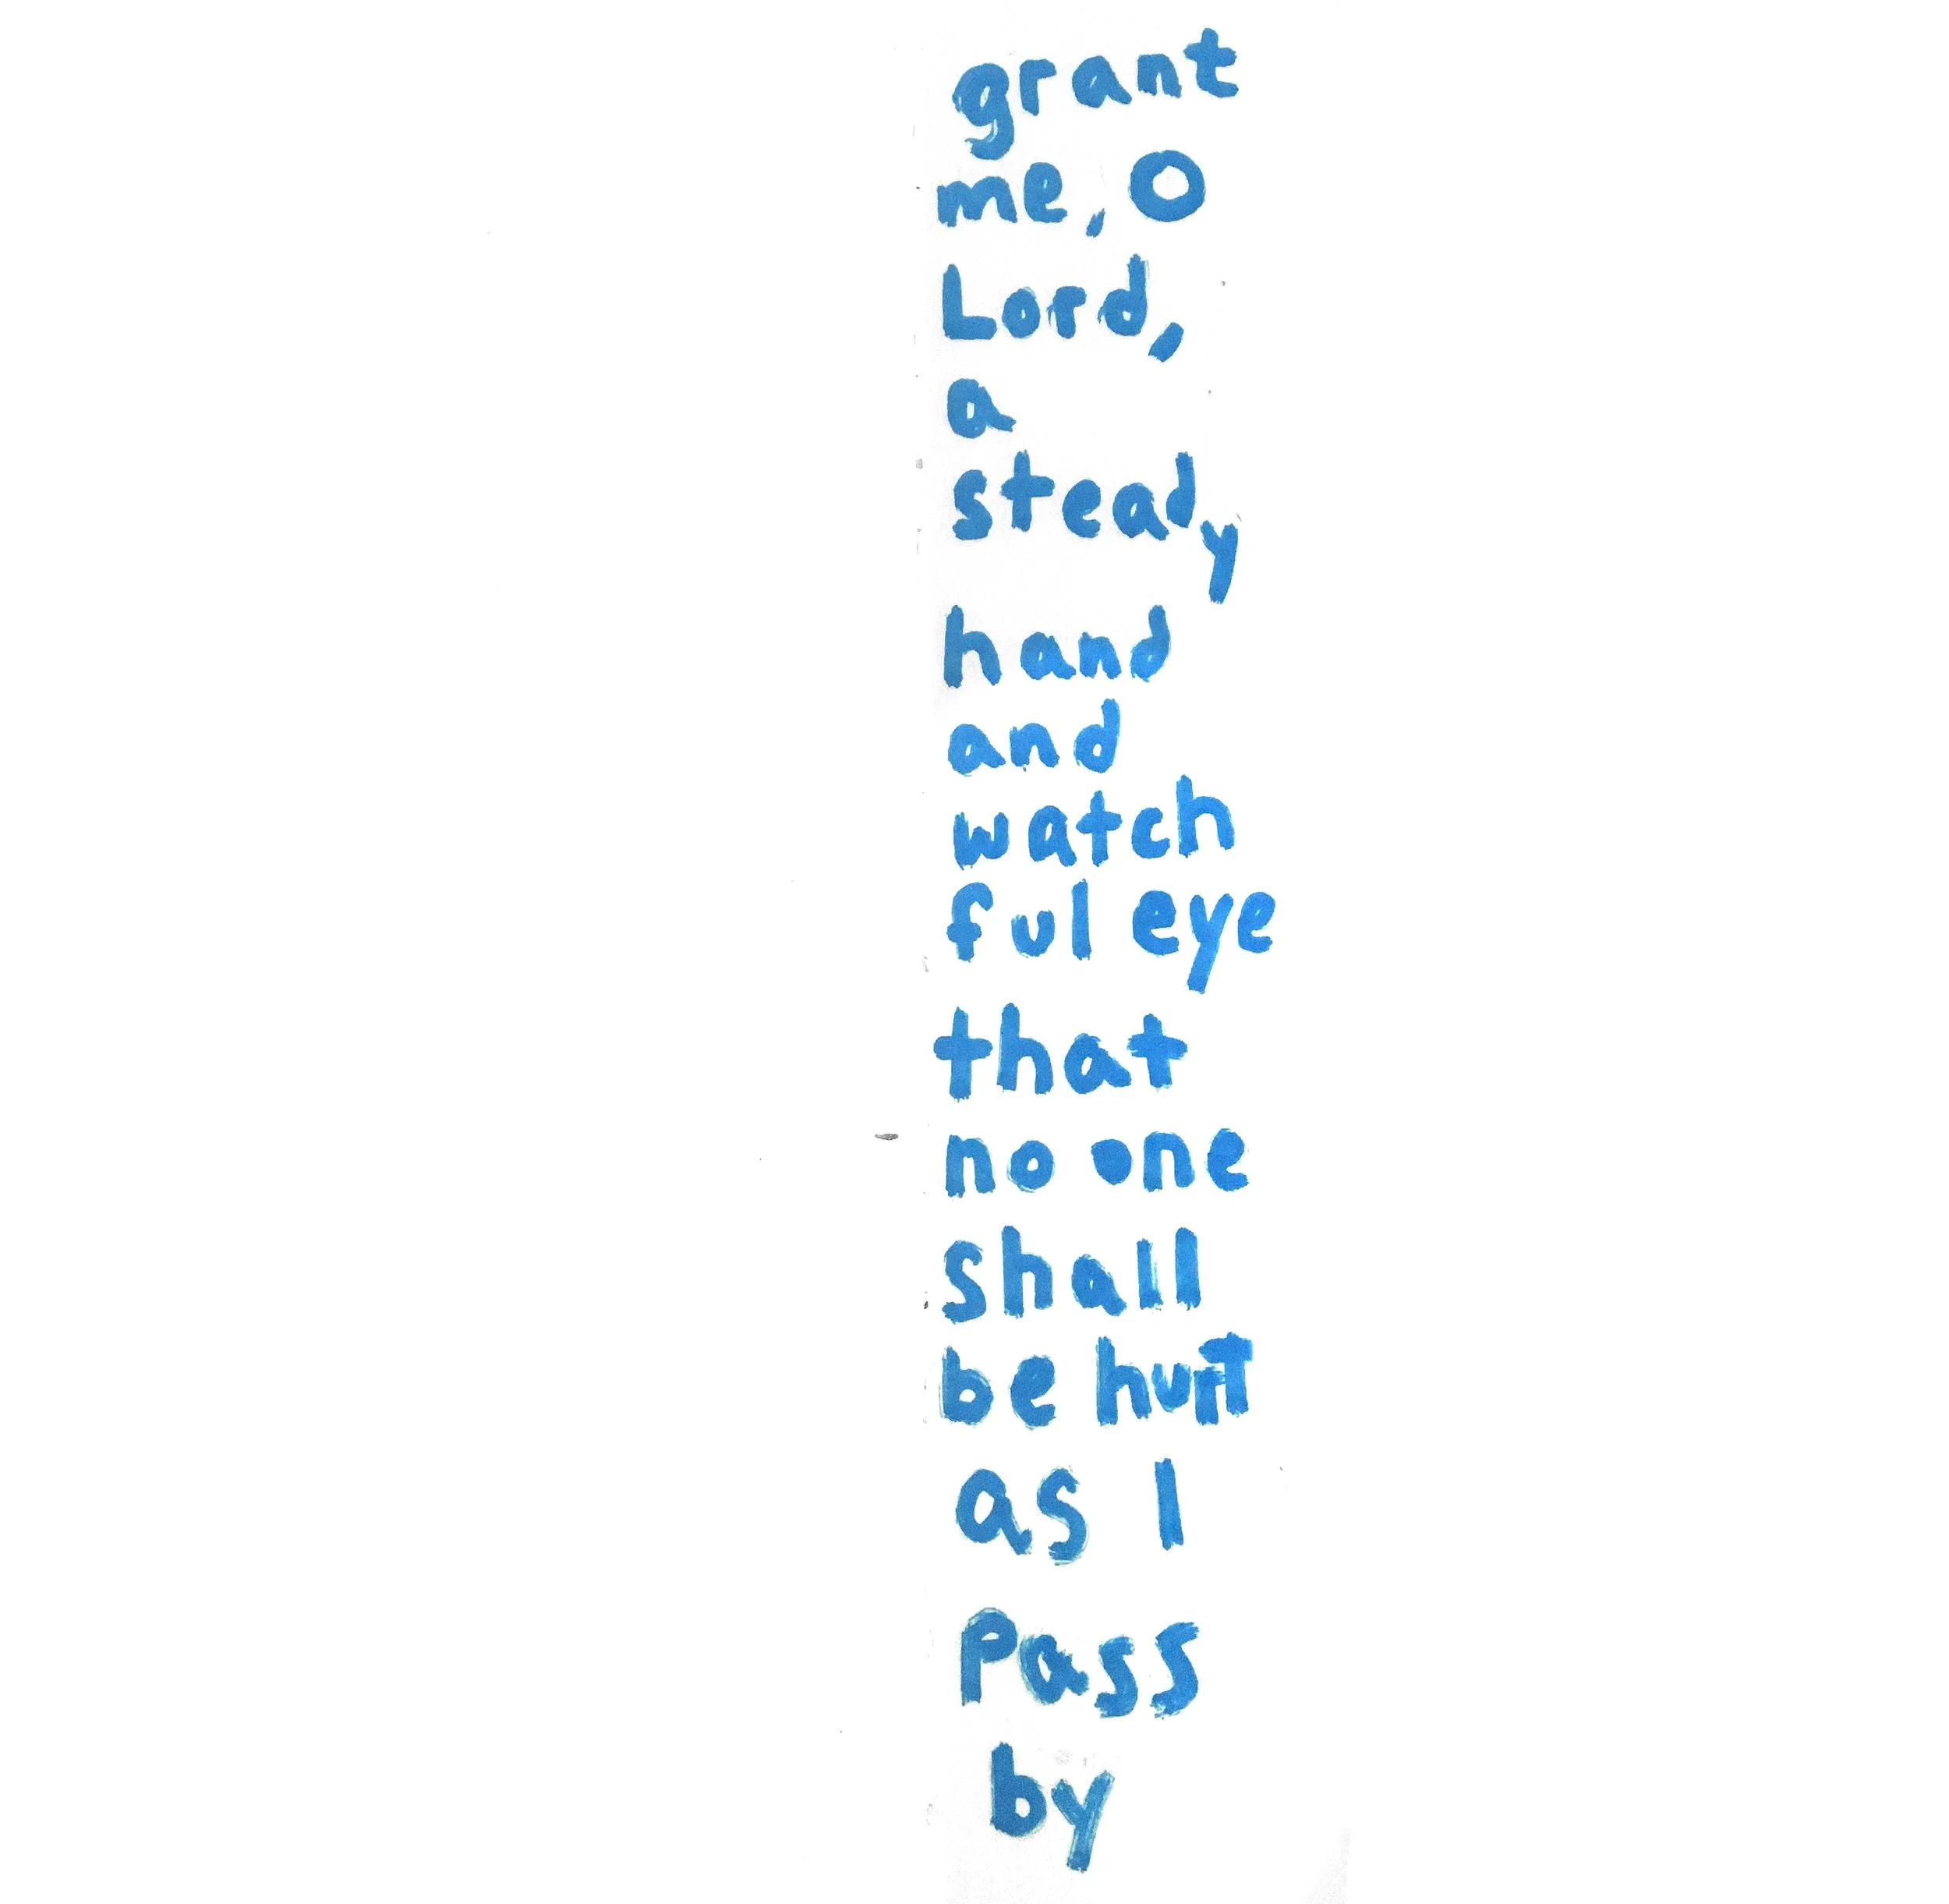 grant
me, O
Lord,
a
steady
hand
and
watch
ful eye
that
no one
shall
be hurt
as I
Pass
by